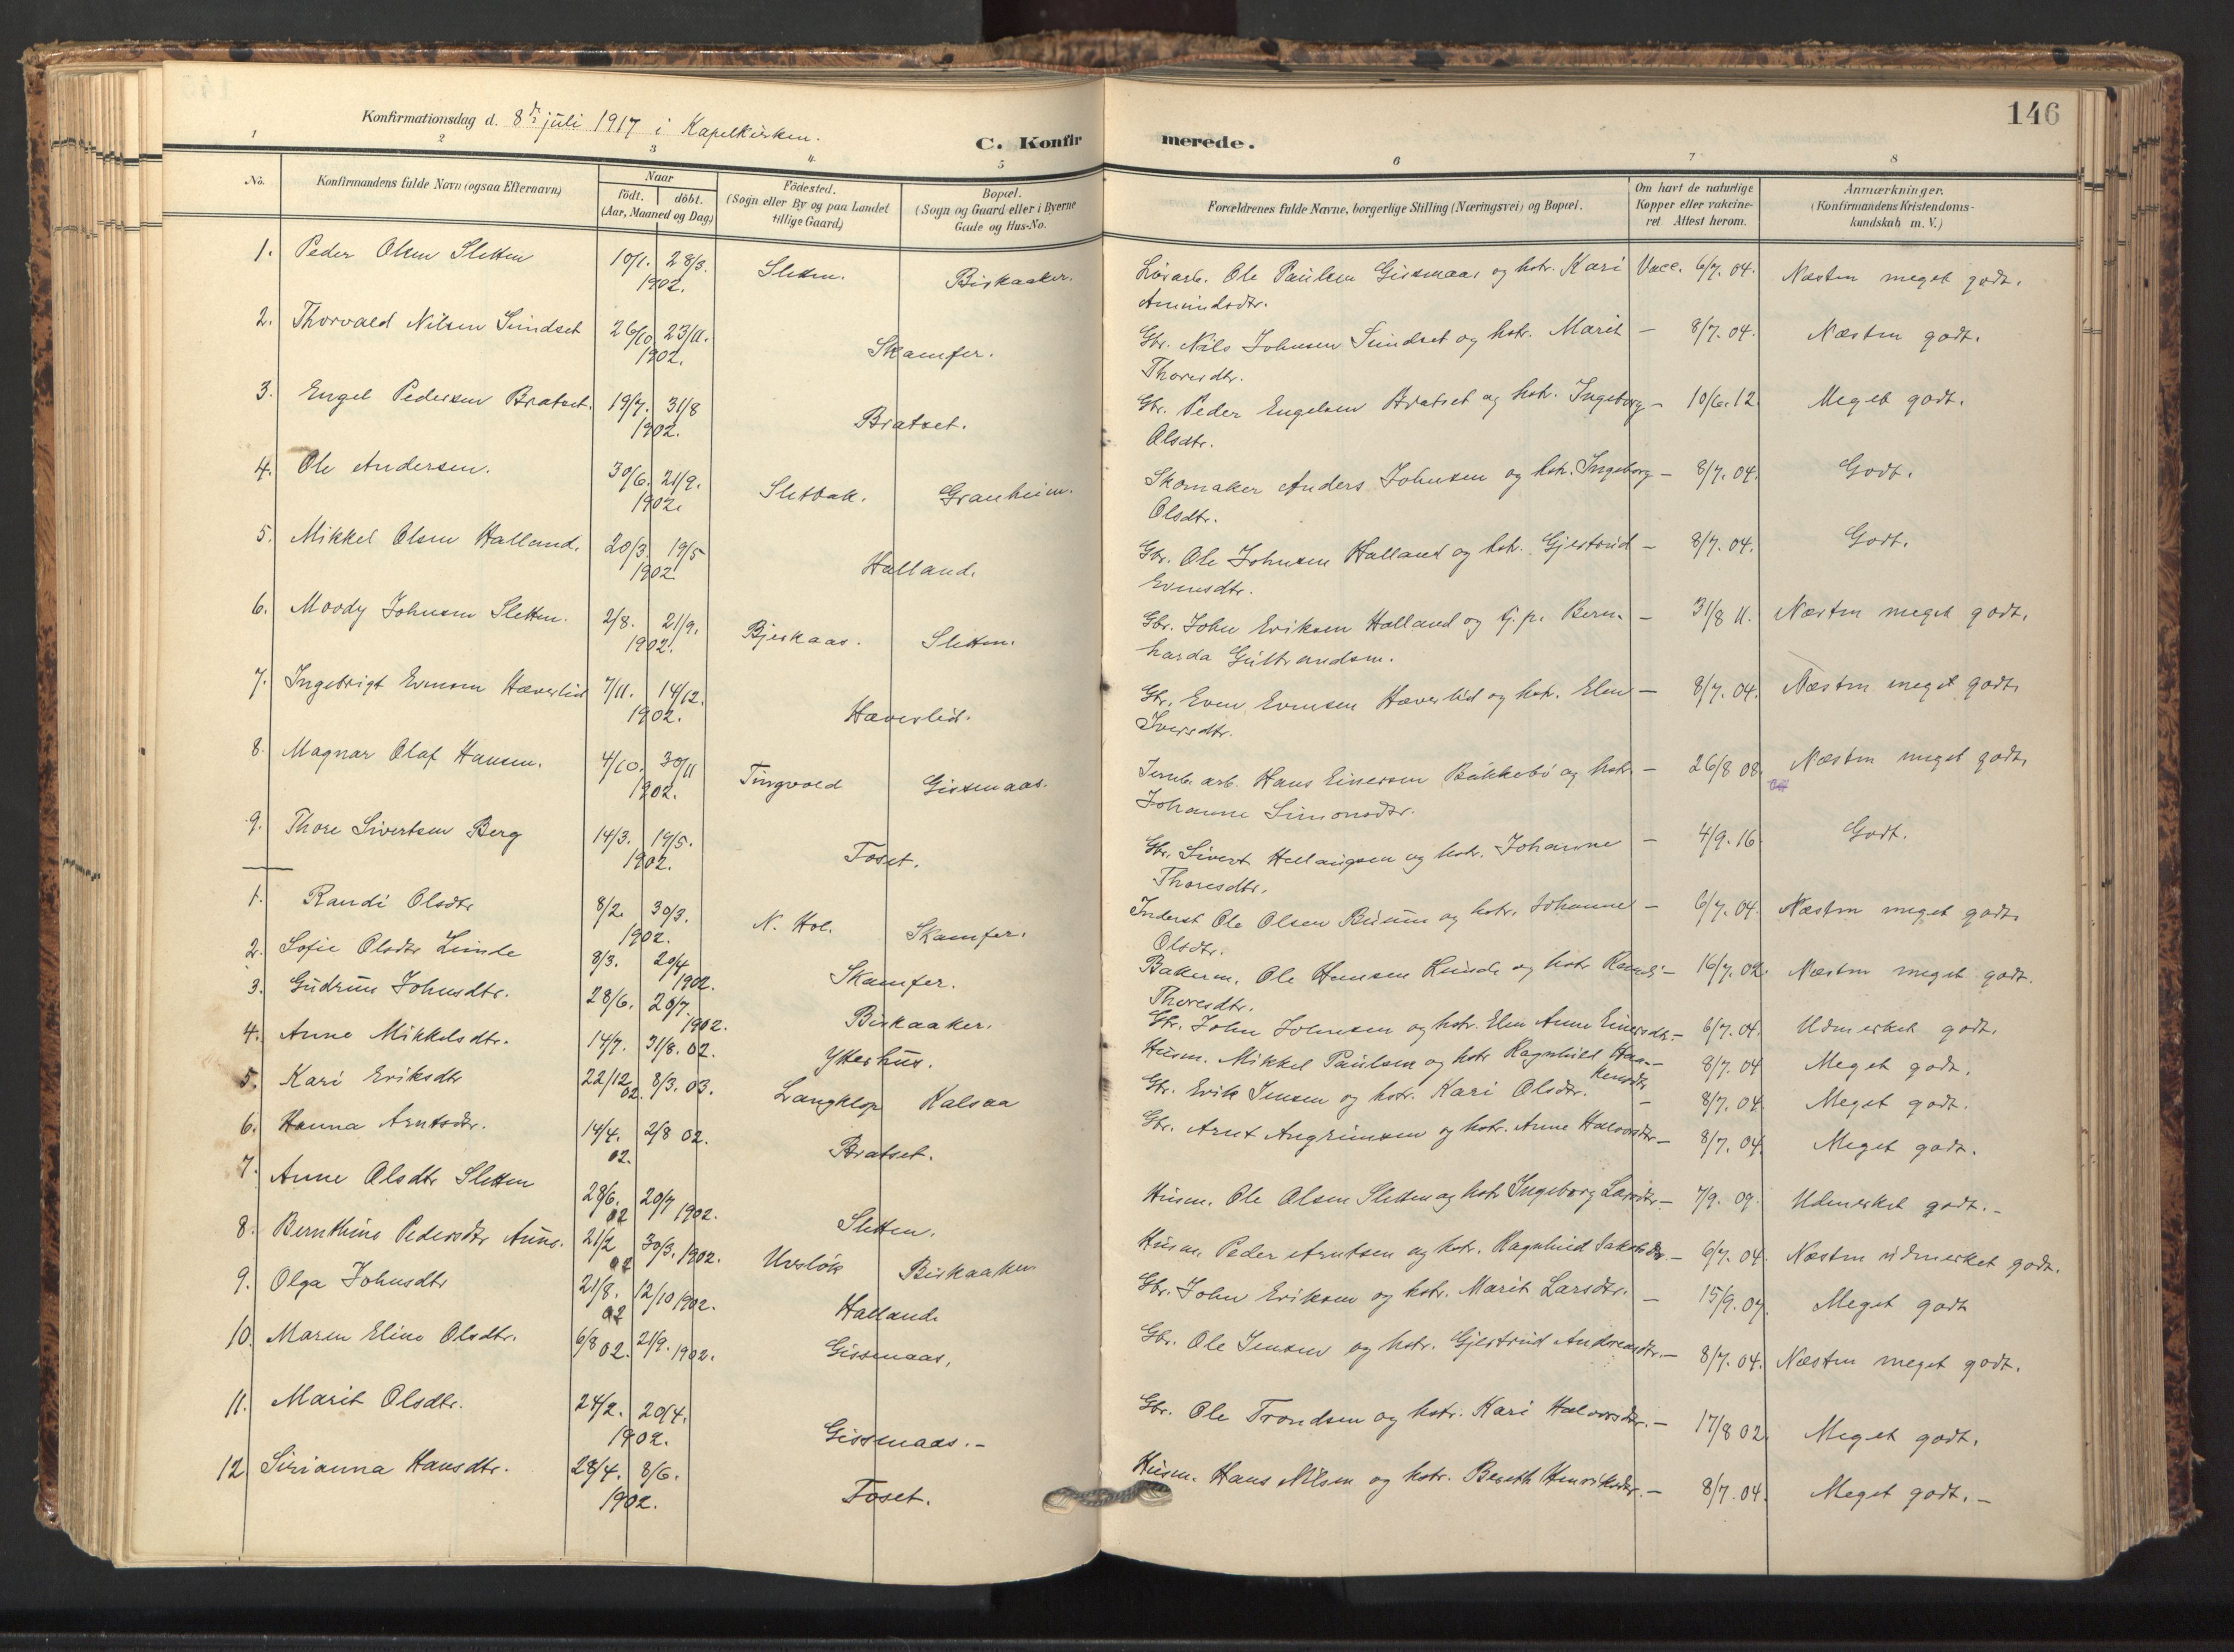 146
Konfirmationsdag d. 8de juli 1917 i Kapelkirken.
C. Konfirmerede.
1 2 3 4 5 6 7 8
No. Konfirmandens fulde Navn (ogsaa Efternavn) Naar födt. döbt. (Aar, Maaned og Dag) Födested. (Sogn eller By og paa Landet tillige Gaard) Bopæl. (Sogn og Gaard eller i Byerne Gade og Hus-No. Forældrenes fulde Navne, borgerlige Stilling (Næringsvei) og Bopæl. Om havt de naturlige Kopper eller vakcineret. Attest herom. Anmærkninger. (Konfirmandens Kristendomskundskab m. V.)
1. Peder Olsen Sletten 10/1. 28/3. 1902. Sletten. Birkaaker. Ole Paulsen Gissmaas og hstr. Kari Amundsdtr. Vacc. 6/7. 04. Næsten meget godt.
2. Thorvald Nilsen Sundset 26/10 23/11. 1902. Skamfer. Gbr. Nils Johnsen Sundset og hstr. Marit Thoresdtr. — 8/7. 04. Næsten godt.
3. Engel Pedersen Bratset. 19/7. 31/8 1902. Bratset. Gbr. Peder Engelsen Bratset og hstr. Ingeborg Olsdtr. — 10/6. 12. Meget godt.
4. Ole Andersen. 30/6. 21/9. 1902. Sletbak. Granheim. Skomaker Anders Johnsen og hstr. Ingeborg Olsdtr. — 8/7. 04. Godt.
5. Mikkel Olsen Halland. 20/3. 19/5 1902. Halland. Gbr. Ole Johnsen Halland og hstr. Gjertrud Evensdtr. — 8/7. 04. Godt.
6. Moody Johnsen Sletten. 2/8. 21/9. 1902. Bjerkaas. Sletten. Gbr. John Eriksen Halland og tj. p. Bernharda Gulbrandsen. — 31/8 11. Næsten meget godt.
7. Ingebrigt Evensen Hæverlid 7/11. 14/12. 1902. Hæverlid. Gbr. Even Evensen Hæverlid og hstr. Elen Iversdtr. — 8/7. 04. Næsten meget godt.
8. Magnar Olaf Hansen. 4/10. 30/11 1902. Tingvold Gissmaas. Jernb. arb. Hans Einersen Bakkebö og hstr. Johanne Simonsdtr. — 26/8 08. Næsten meget godt.
9. Thore Sivertsen Berg 14/3. 19/5. 1902. Toset. Gbr. Sivert Hallaugsen og hstr. Johanne Thoresdtr. — 4/9. 16. Godt.
1. Randi Olsdtr 8/2. 30/3. 1902. N. Hol. Skamfer. Inderst Ole Olsen og hstr. Johanne Olsdtr. — 6/7. 04. Næsten meget godt.
2. Sofie Olsdtr Lunde 8/3. 20/4 1902. Skamfer. Bakerm. Ole Hansen Lunde og hstr Randi Thoresdtr. — 16/7. 02. Næsten meget godt.
3. Gudrun Johnsdtr. 28/6. 20/7. 1902. Birkaaker. Gbr. John Johnsen og hstr. Elen Anne Einersdtr. — 6/7. 04. Udmerket godt.
4. Anne Mikkelsdtr. 14/7. 31/8. 02. Ytterhus. Husm. Mikkel Paulsen og hstr Ragnhild Haakensdtr — 8/7. 04 Meget godt.
5. Kari Eriksdtr 22/12 02. 8/3. 03. Langklop Kalsaa Gbr. Erik Jensen og hstr. Kari Olsdtr. — 8/7. 04. Meget godt.
6. Hanna Arntsdtr. 14/4. 02. 2/8 02. Bratset. Gbr. Arnt Angrimsen og hstr. Anne Halvorsdtr — 8/7. 04. Meget godt.
7. Anne Olsdtr Sletten 28/6. 02 20/7 1902. Sletten. Husm. Ole Olsen Sletten og hstr Ingeborg Larsdtr. — 7/9. 09. Udmerket godt. -
8. Bernthine Pedersdtr Aune. 21/2 02 30/3. 1902. Birkaaker Husm. Peder Arntsen og hstr. Ragnhild Jakobsdtr — 6/7. 04. Næsten udmerket godt.
9. Olga Johnsdtr 21/8. 02 12/10 1902. Halland. Gbr. John Eriksen og hstr. Marit Larsdtr. — 15/9. 07. Meget godt
10. Maren Eline Olsdtr. 6/8 02. 21/9. 1902. Gissmaas. Gbr. Ole Jensen og hstr. Gjertrud Andreasdtr. — 8/7. 04. Næsten meget godt.
11. Marit Olsdtr. 24/2. 20/4. 1902. Gissmaas. - Gbr. Ole Trondsen og hstr. Kari Halvorsdtr. — 17/8 02. Meget godt.
12. Sirianna Hansdtr. 28/4. 8/6. 1902. Toset. Husm. Hans Nilsen og hstr. Bereth Henriksdtr. — 8/7. 04. Meget godt. -